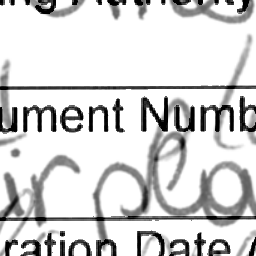 ing Authority
ument Numb
ir pla
ration Date